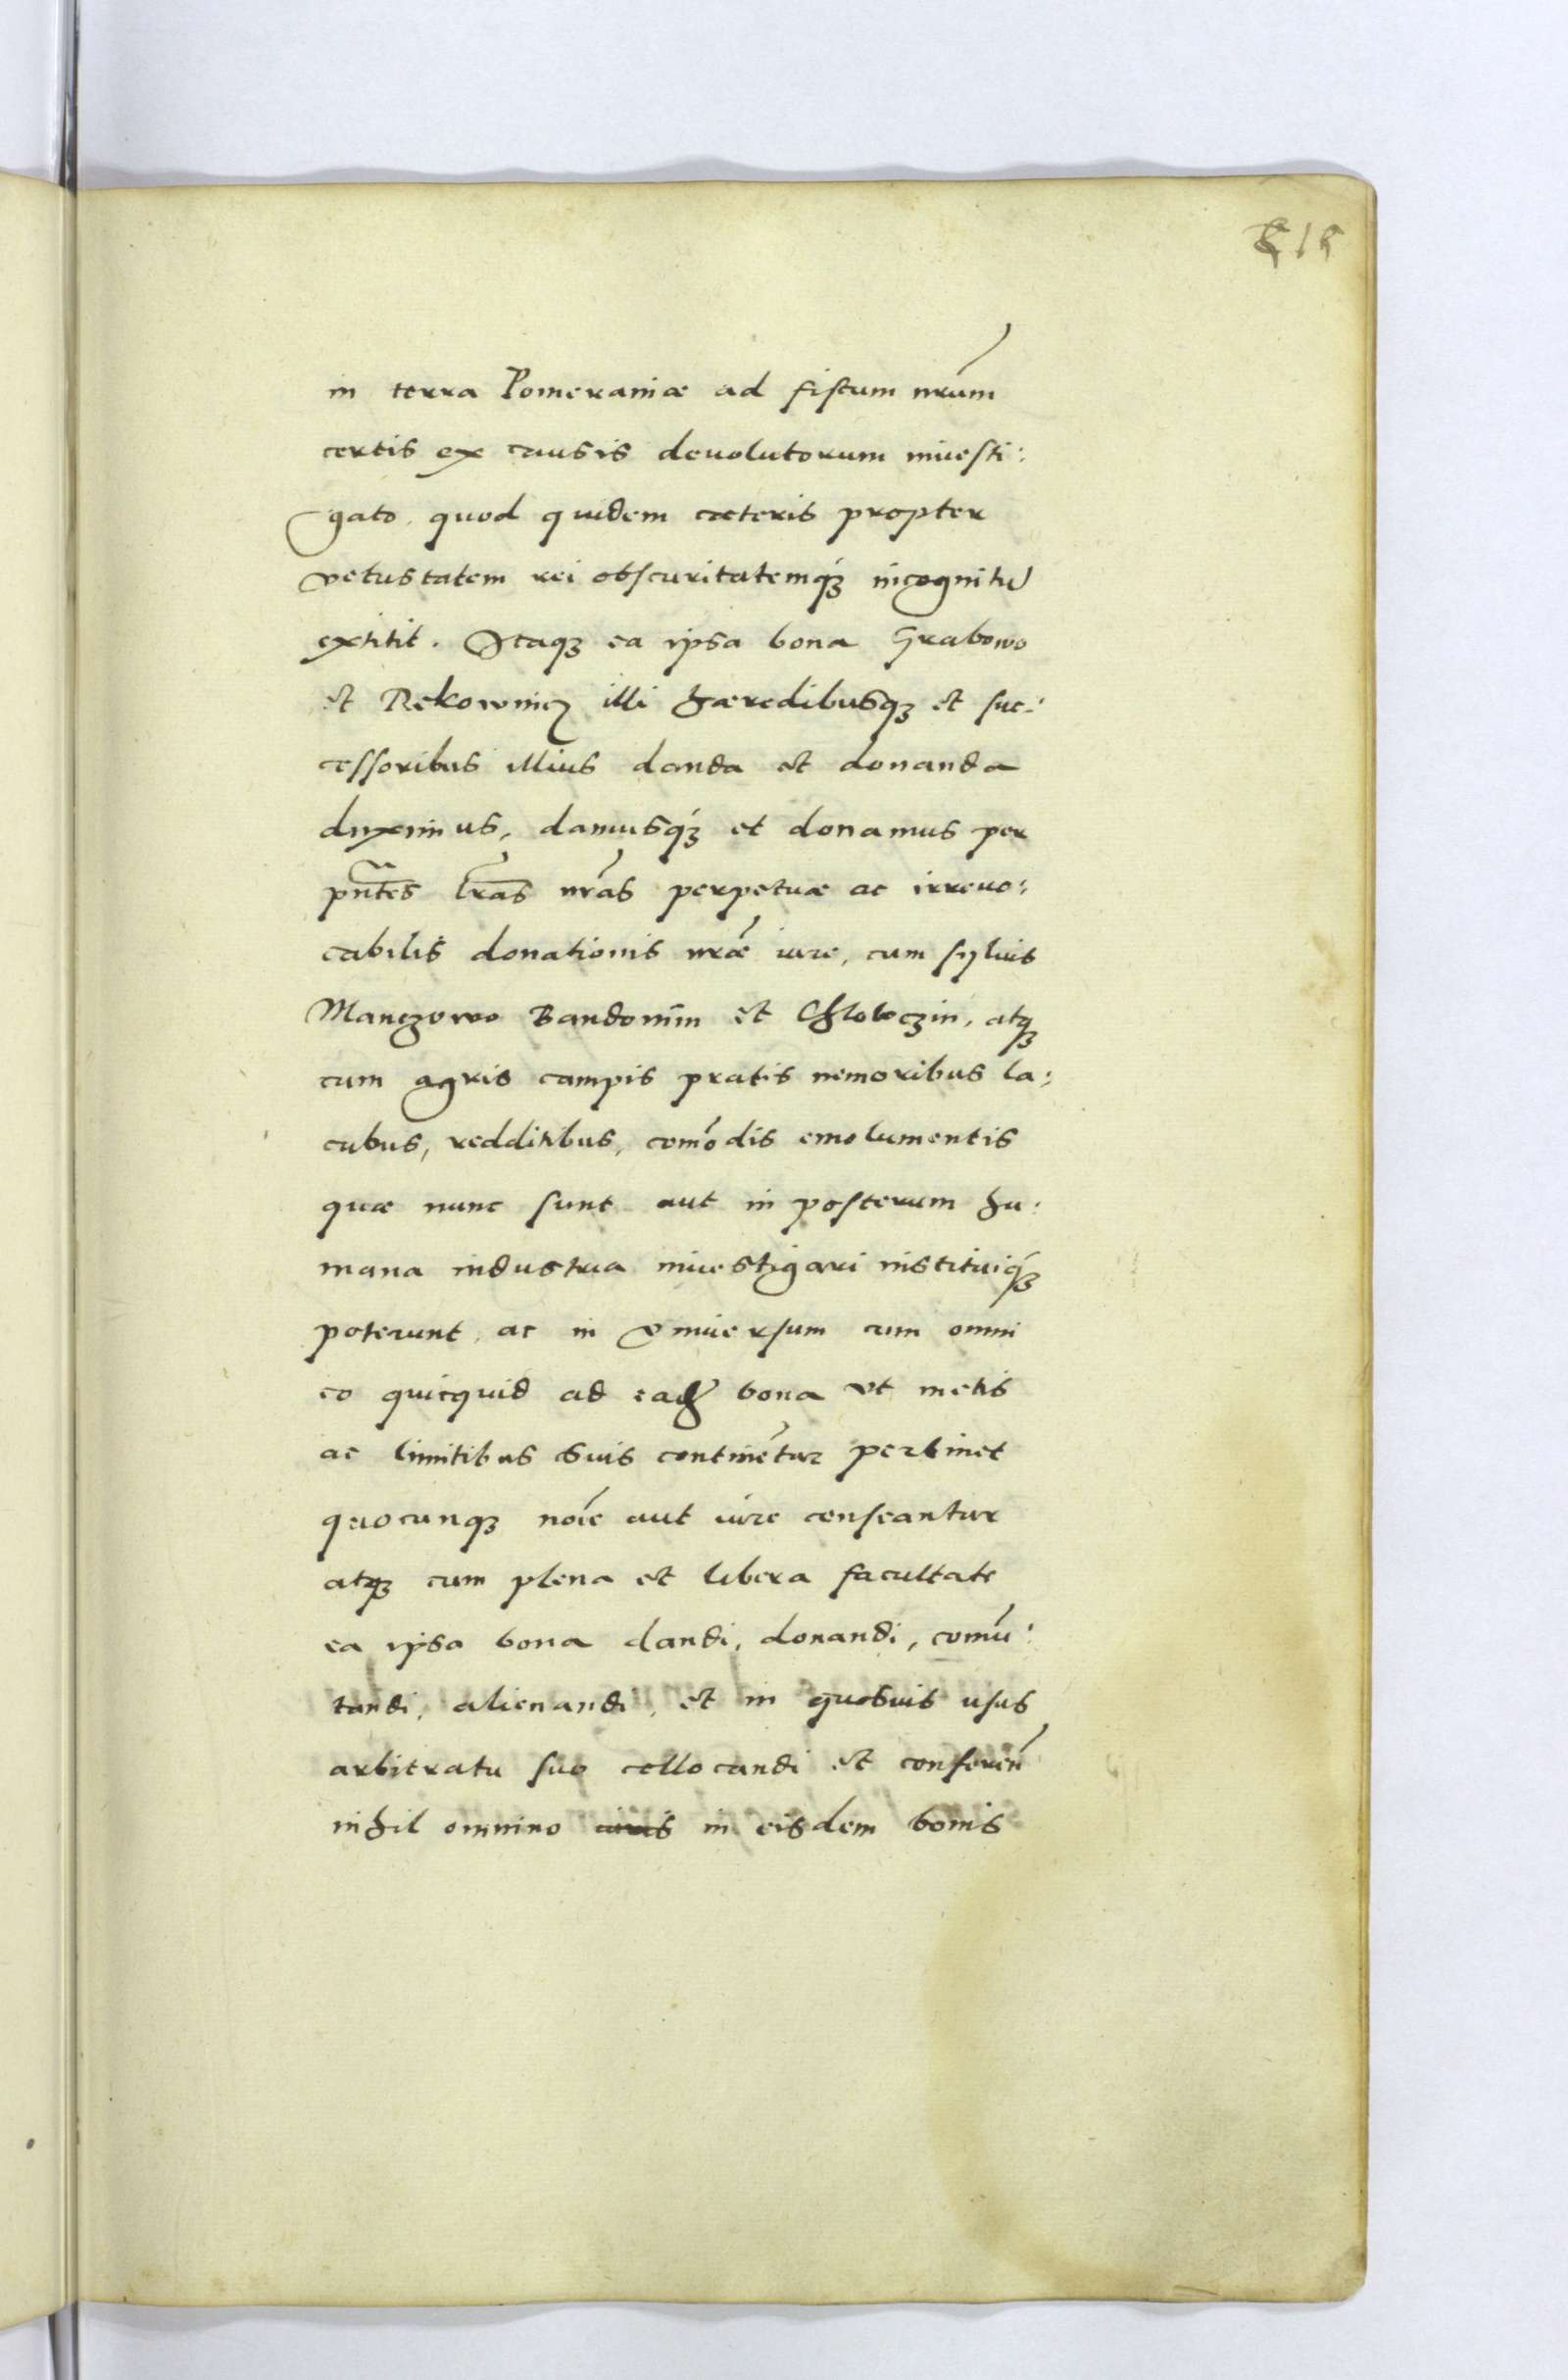 in terra Pomeraniæ ad fiscum nr̃um
certis ex causis deuolutorum inuesti:
gato, quod quidem cæteris propter
vetustatem rei obscuritatemq́ꝫ incognitũ
extitit. Itaqꝫ ea ipsa bona Grabowo
et Rekownicz illi hæredibusqꝫ et suc:
cessoribus illius danda et donanda
duximus, damusq́ꝫ et donamus per
pn̄tes lr̄as nr̃as perpetuæ ac irreuo:
cabilis donationis nr̃æ iure, cum syluis
Manczowo Bandomin et Chloczin, atqꝫ
cum agris campis pratis nemoribus la:
cubus, redditibus, com̃odis emolumentis
quæ nunc sunt aut in posterum hu:
mana industria inuestigari instituiq́ꝫ
poterunt, ac in vniuersum cum omni
eo quicquid ad ea bona vt metis
ac limitibus suis continẽtur pertinet
quocunqꝫ noĩe aut iure censeantur
atqꝫ cum plena et libera facultate
ea ipsa bona dandi, donandi, comũ:
tandi, alienandi, et in quosuis usus
arbitratu suo collocandi et conferen̄
nihil omnino iuris in eisdem bonis